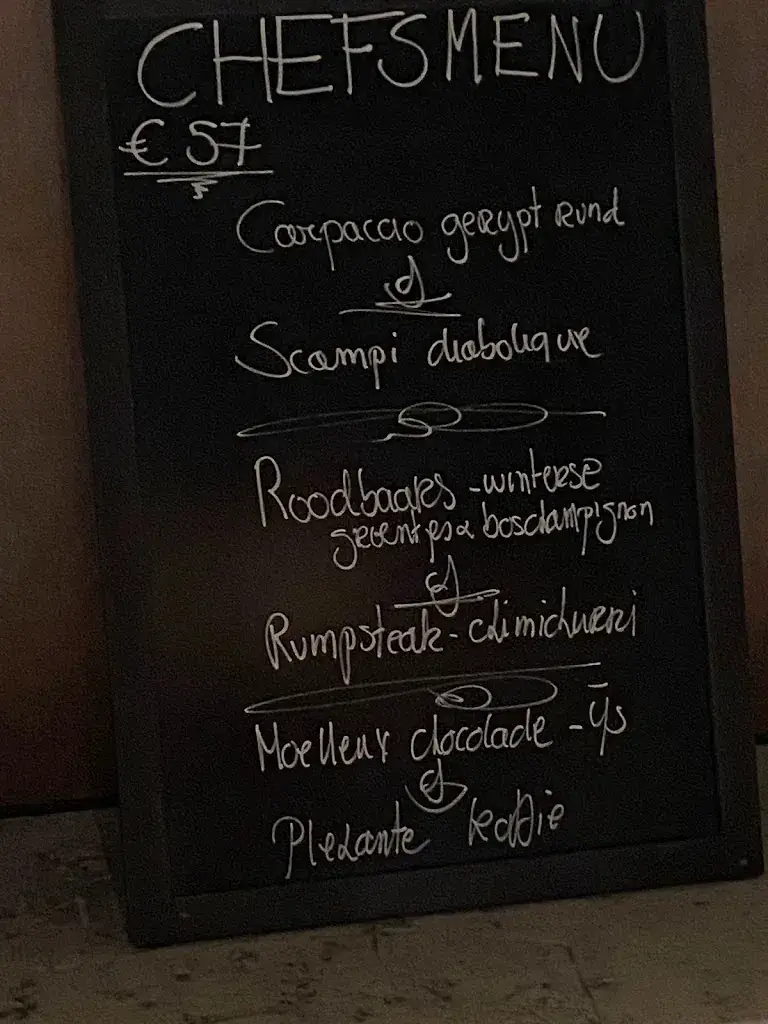 CHEFSMENU
€ 57
Carpaccio gerypt Rund
of
Scampi diabolique
Roodbaars - winterse
groentjes & boschampignon
of
Rumpsteak - chimichurri
Moelleux chocolade - ijs
of
Plezante koffie